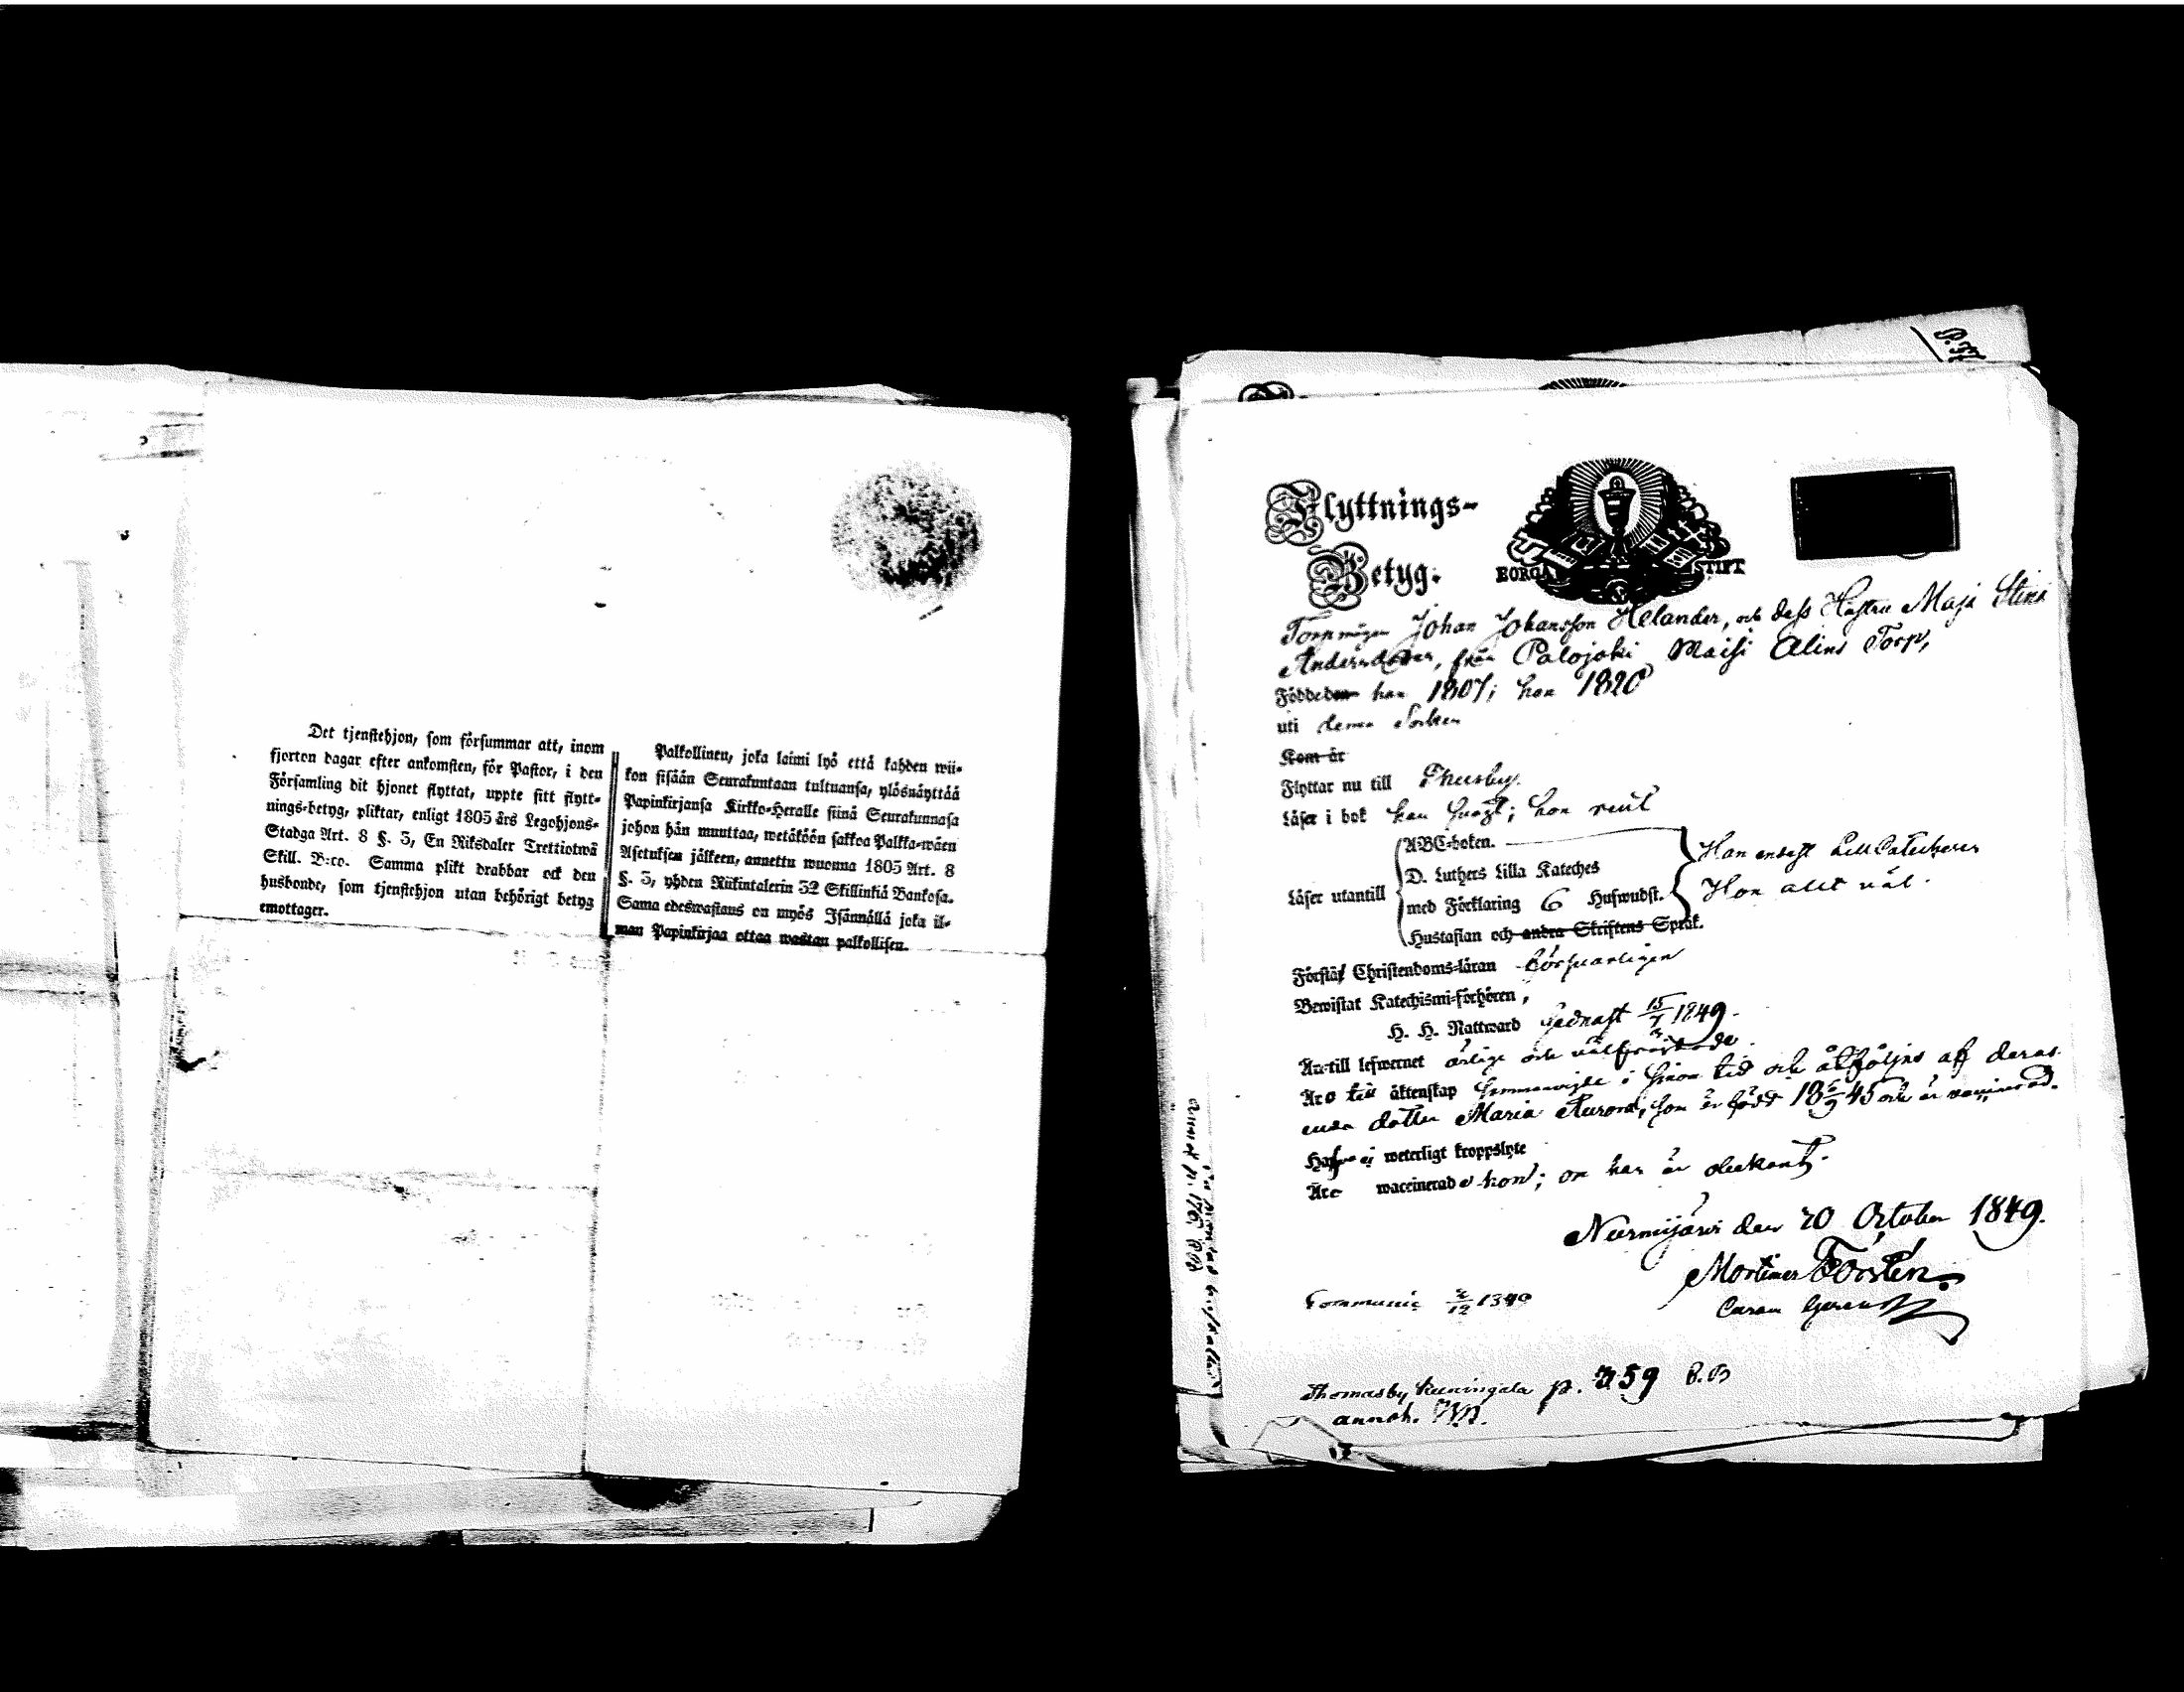 Det tjenstehjon, som försummar att, inom
fjorton dagar efter ankomsten, för Pastor, i den
Församling dit hjonet flyttat, uppte sitt flytt-
nings-betyg, pliktar, enligt 1805 års Legohjons-
Stadga Art. 8 §. 3, En Riksdaler Trettiotwå
Skill. B:co. Samma plikt drabbar ock den
husbonde, som tjenstehjon utan behörigt betyg
emottager.
Palkollinen, joka laimi lyö että kahden wii-
kon sisään Seurakuntaan tultuansa, ylösnäyttää
Papinkirjansa Kirkko-Heralle siinä Seurakunnasa
johon hän muuttaa, wetäköön sakkoa Palkka-wäen
Asetuksen jälkeen, annettu wuonna 1805 Art. 8
§. 3, yhden Riikintalerin 32 Skillinkiä Bankosa.
Sama edeswastaus on myös Isännällä joka il-
man Papinkirjaa ottaa wastan palkollisen.
Flyttnings-
Betyg.
BORGÅ STIFT
Johan Johansson Helander, och dess Hustru Maja Stina
Andersdotter, från Palojoki Maisi Alins Torp,
Födde den han 1807; hon 1820
uti denna Socken
Kom år
Flyttar nu till Thusby.
Läser i bok han svagt; hon
Läser utantill
ABC-boken.
D. Luthers Lilla Kateches
med Förklaring 6 Hufwudst.
Hustaflan och andra Skriftens Språk.
Han endast Lill Catechesen
Hon allt väl.
Förstår Christendoms-läran försvarligen
Bewistat Katechismi-förhören,
H. H. Nattward sednast 15/7 1849.
Är till lefwernet ärlige och välfrejdade.
Äro till äktenskap sammanvigde i sinom tid och åtföljas af deras
dotter Maria Aurora, som är född 18 45 och är vaccinerad.
Hafwa ej weterligt kroppslyte
Äre waccinerade hon; om han är obekant.
Nurmijärvi den 20 October 1849.
Mortimer Forstén.
Communic 2/12 1849
Thomasby Kuningala p. 359 B.B
annot.